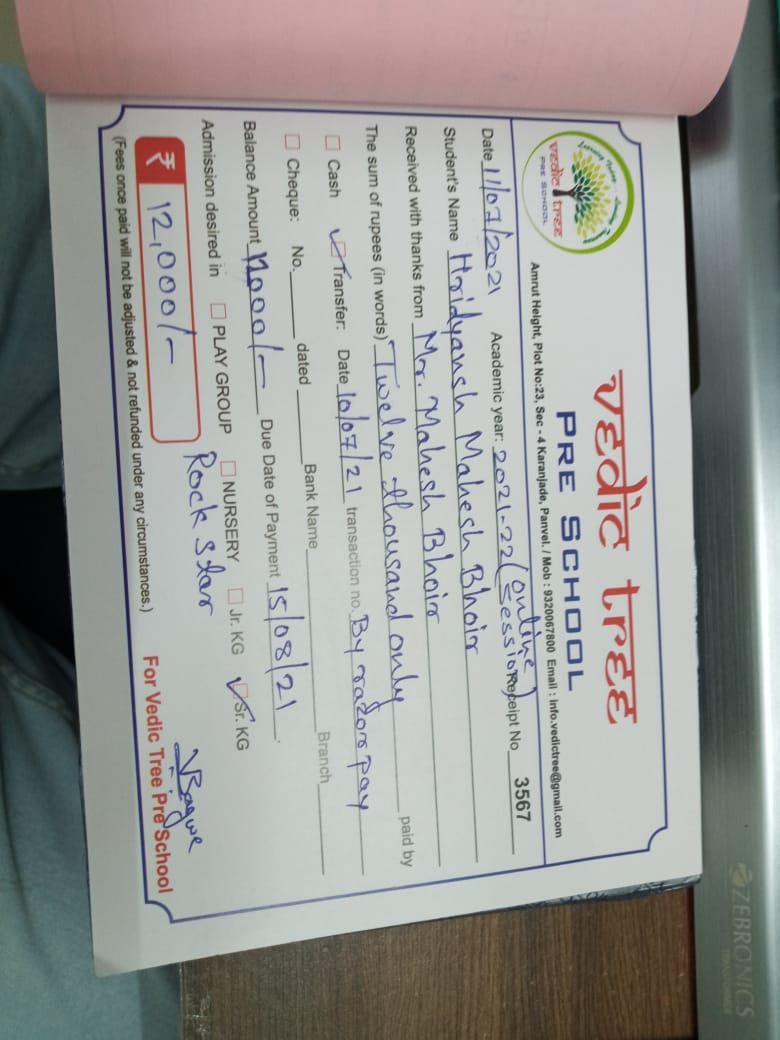 vedic tree
PRE SCHOOL
vedic tree
PRE SCHOOL
Amrut Height, Plot No:23, Sec - 4 Karanjade, Panvel. / Mob : 9320067800 Email : info.vedictree@gmail.com
Date 11/07/2021 Academic year: 2021-22 (online session) Receipt No 3567
Student's Name Hridyansh Mahesh Bhoir
Received with thanks from Mr. Mahesh Bhoir
The sum of rupees (in words) Twelve thousand only paid by
Cash Transfer: Date 10/07/21 transaction no. By razor pay
Cheque: No. dated Bank Name Branch
Balance Amount 11000/- Due Date of Payment 15/08/21.
Admission desired in PLAY GROUP NURSERY Jr. KG Sr. KG
₹ 12,000/- Rock Star
(Fees once paid will not be adjusted & not refunded under any circumstances.)
For Vedic Tree Pre School
ZEBRONICS